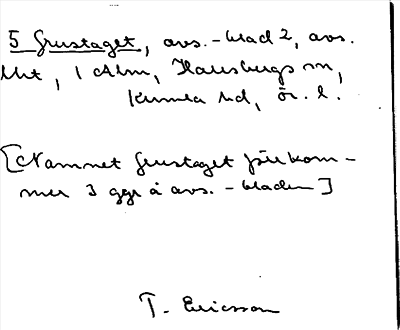 5 Grustaget, avs.-blad 2, avs.
Ut, 1 Alm, Hallsbergs sn,
Kumla hd, ör. l.
[Namnet Grustaget förekom-
mer 3 ggr å avs.-bladen]
T. Ericsson